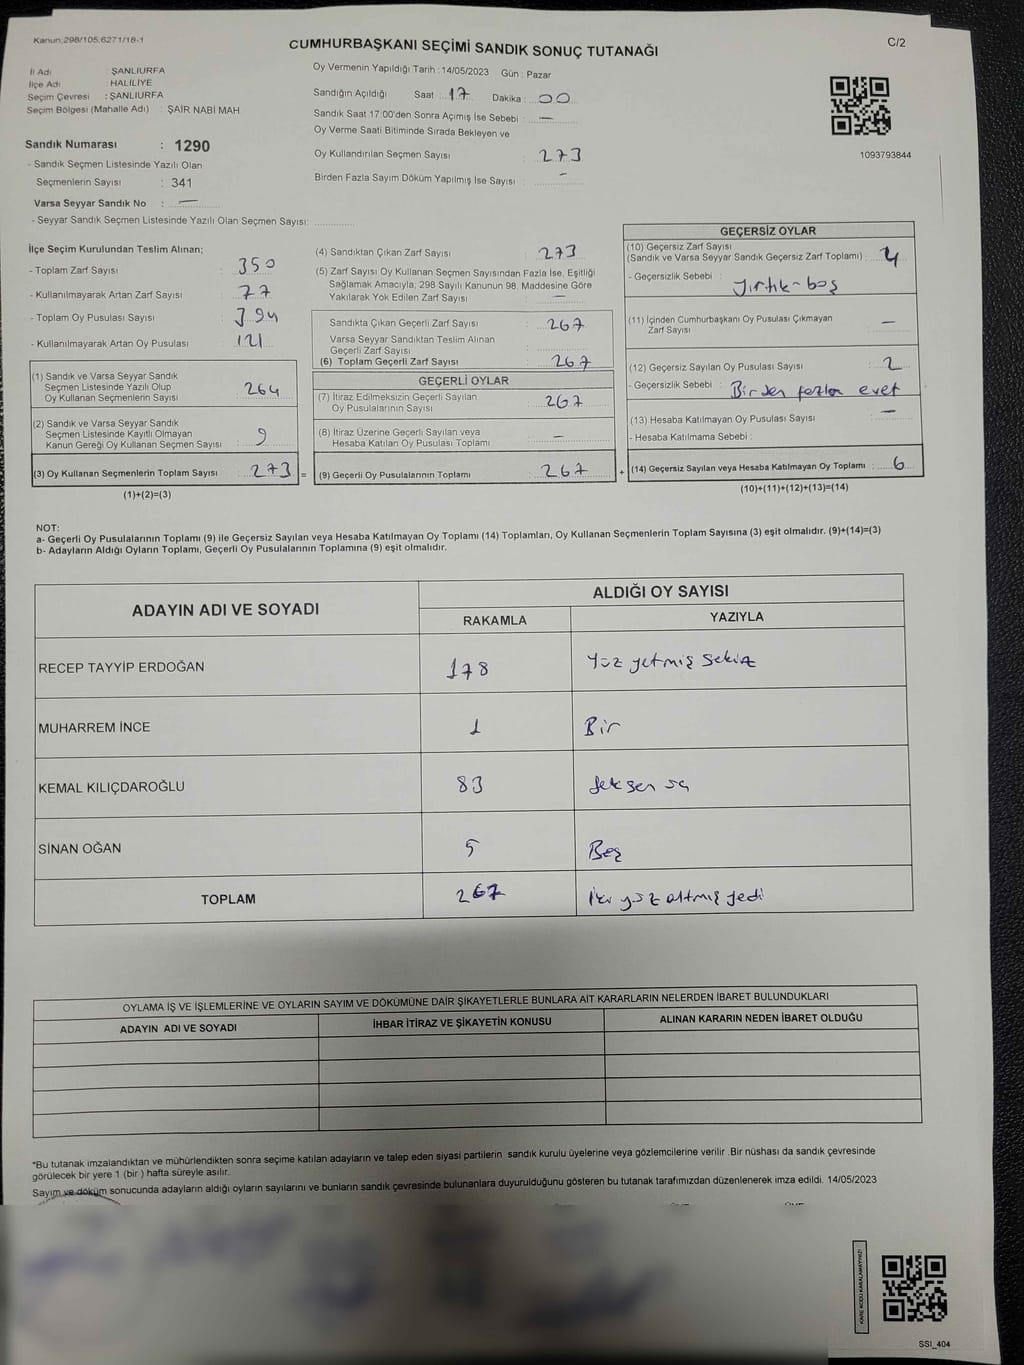 Kanun:298/105,6271/18-1
C/2
CUMHURBAŞKANI SEÇİMİ SANDIK SONUÇ TUTANAĞI
İl Adı : ŞANLIURFA
İlçe Adı : HALİLİYE
Seçim Çevresi : ŞANLIURFA
Seçim Bölgesi (Mahalle Adı) : ŞAİR NABİ MAH.
Oy Vermenin Yapıldığı Tarih :14/05/2023 Gün : Pazar
Sandığın Açıldığı Saat : 17 Dakika : 00
Sandık Saat 17:00'den Sonra Açımış İse Sebebi : —
Oy Verme Saati Bitiminde Sırada Bekleyen ve
Oy Kullandırılan Seçmen Sayısı : 273
Birden Fazla Sayım Döküm Yapılmış İse Sayısı : —
1093793844
Sandık Numarası : 1290
- Sandık Seçmen Listesinde Yazılı Olan
Seçmenlerin Sayısı : 341
Varsa Seyyar Sandık No : —
- Seyyar Sandık Seçmen Listesinde Yazılı Olan Seçmen Sayısı:
İlçe Seçim Kurulundan Teslim Alınan;
- Toplam Zarf Sayısı : 350
- Kullanılmayarak Artan Zarf Sayısı : 77
- Toplam Oy Pusulası Sayısı : 394
- Kullanılmayarak Artan Oy Pusulası : 121
(1) Sandık ve Varsa Seyyar Sandık
Seçmen Listesinde Yazılı Olup
Oy Kullanan Seçmenlerin Sayısı : 264
(2) Sandık ve Varsa Seyyar Sandık
Seçmen Listesinde Kayıtlı Olmayan
Kanun Gereği Oy Kullanan Seçmen Sayısı : 9
(3) Oy Kullanan Seçmenlerin Toplam Sayısı : 273 =
(1)+(2)=(3)
(4) Sandıktan Çıkan Zarf Sayısı : 273
(5) Zarf Sayısı Oy Kullanan Seçmen Sayısından Fazla İse, Eşitliği
Sağlamak Amacıyla, 298 Sayılı Kanunun 98. Maddesine Göre
Yakılarak Yok Edilen Zarf Sayısı : —
Sandıkta Çıkan Geçerli Zarf Sayısı : 267
Varsa Seyyar Sandıktan Teslim Alınan
Geçerli Zarf Sayısı :
(6) Toplam Geçerli Zarf Sayısı : 267
GEÇERLİ OYLAR
(7) İtiraz Edilmeksizin Geçerli Sayılan
Oy Pusulalarının Sayısı : 267
(8) İtiraz Üzerine Geçerli Sayılan veya
Hesaba Katılan Oy Pusulası Toplamı : —
(9) Geçerli Oy Pusulalarının Toplamı : 267 +
GEÇERSİZ OYLAR
(10) Geçersiz Zarf Sayısı
(Sandık ve Varsa Seyyar Sandık Geçersiz Zarf Toplamı) : 4
- Geçersizlik Sebebi : yırtık-boş
(11) İçinden Cumhurbaşkanı Oy Pusulası Çıkmayan
Zarf Sayısı : —
(12) Geçersiz Sayılan Oy Pusulası Sayısı : 2
- Geçersizlik Sebebi : Birden fazla evet
(13) Hesaba Katılmayan Oy Pusulası Sayısı : —
- Hesaba Katılmama Sebebi :
(14) Geçersiz Sayılan veya Hesaba Katılmayan Oy Toplamı : 6
(10)+(11)+(12)+(13)=(14)
NOT:
a- Geçerli Oy Pusulalarının Toplamı (9) ile Geçersiz Sayılan veya Hesaba Katılmayan Oy Toplamı (14) Toplamları, Oy Kullanan Seçmenlerin Toplam Sayısına (3) eşit olmalıdır. (9)+(14)=(3)
b- Adayların Aldığı Oyların Toplamı, Geçerli Oy Pusulalarının Toplamına (9) eşit olmalıdır.
ADAYIN ADI VE SOYADI
ALDIĞI OY SAYISI
RAKAMLA YAZIYLA
RECEP TAYYİP ERDOĞAN 178 Yüz yetmiş sekiz
MUHARREM İNCE 1 Bir
KEMAL KILIÇDAROĞLU 83 Seksen üç
SİNAN OĞAN 5 Beş
TOPLAM 267 İki yüz altmış yedi
OYLAMA İŞ VE İŞLEMLERİNE VE OYLARIN SAYIM VE DÖKÜMÜNE DAİR ŞİKAYETLERLE BUNLARA AİT KARARLARIN NELERDEN İBARET BULUNDUKLARI
ADAYIN ADI VE SOYADI İHBAR İTİRAZ VE ŞİKAYETİN KONUSU ALINAN KARARIN NEDEN İBARET OLDUĞU
*Bu tutanak imzalandıktan ve mühürlendikten sonra seçime katılan adayların ve talep eden siyasi partilerin sandık kurulu üyelerine veya gözlemcilerine verilir .Bir nüshası da sandık çevresinde
görülecek bir yere 1 (bir ) hafta süreyle asılır.
Sayım ve döküm sonucunda adayların aldığı oyların sayılarını ve bunların sandık çevresinde bulunanlara duyurulduğunu gösteren bu tutanak tarafımızdan düzenlenerek imza edildi. 14/05/2023
KARE KODU KARALAMAYINIZ!
SSI_404